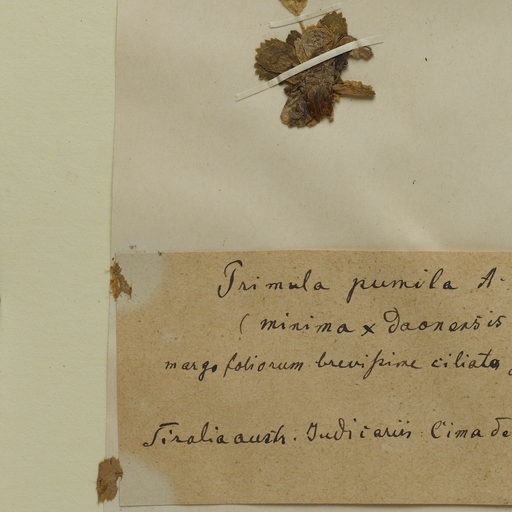 Primula pumila A.
(minima x Daonensis
margo foliorum brevissime ciliato
Tirolia austr. Judicariis Cima de